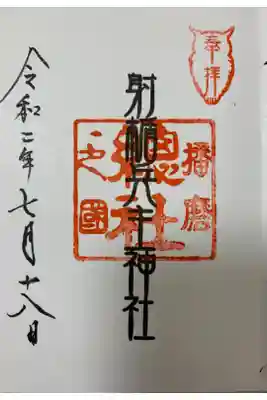 奉拝
射楯兵主神社
播磨
總社
之國
令和二年七月十八日